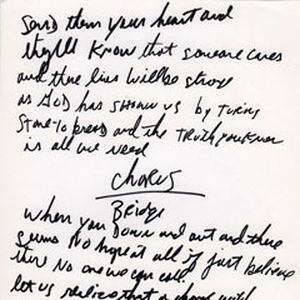 Send them your heart and
they'll know that someone cares
and there lives will be strong
as God has shown us by turing
stone to bread and the truth
is all we need
Chorus
Bridge
when you down and out and there
seems no hope at all if just believe
there no one we can call
let us realize that a change